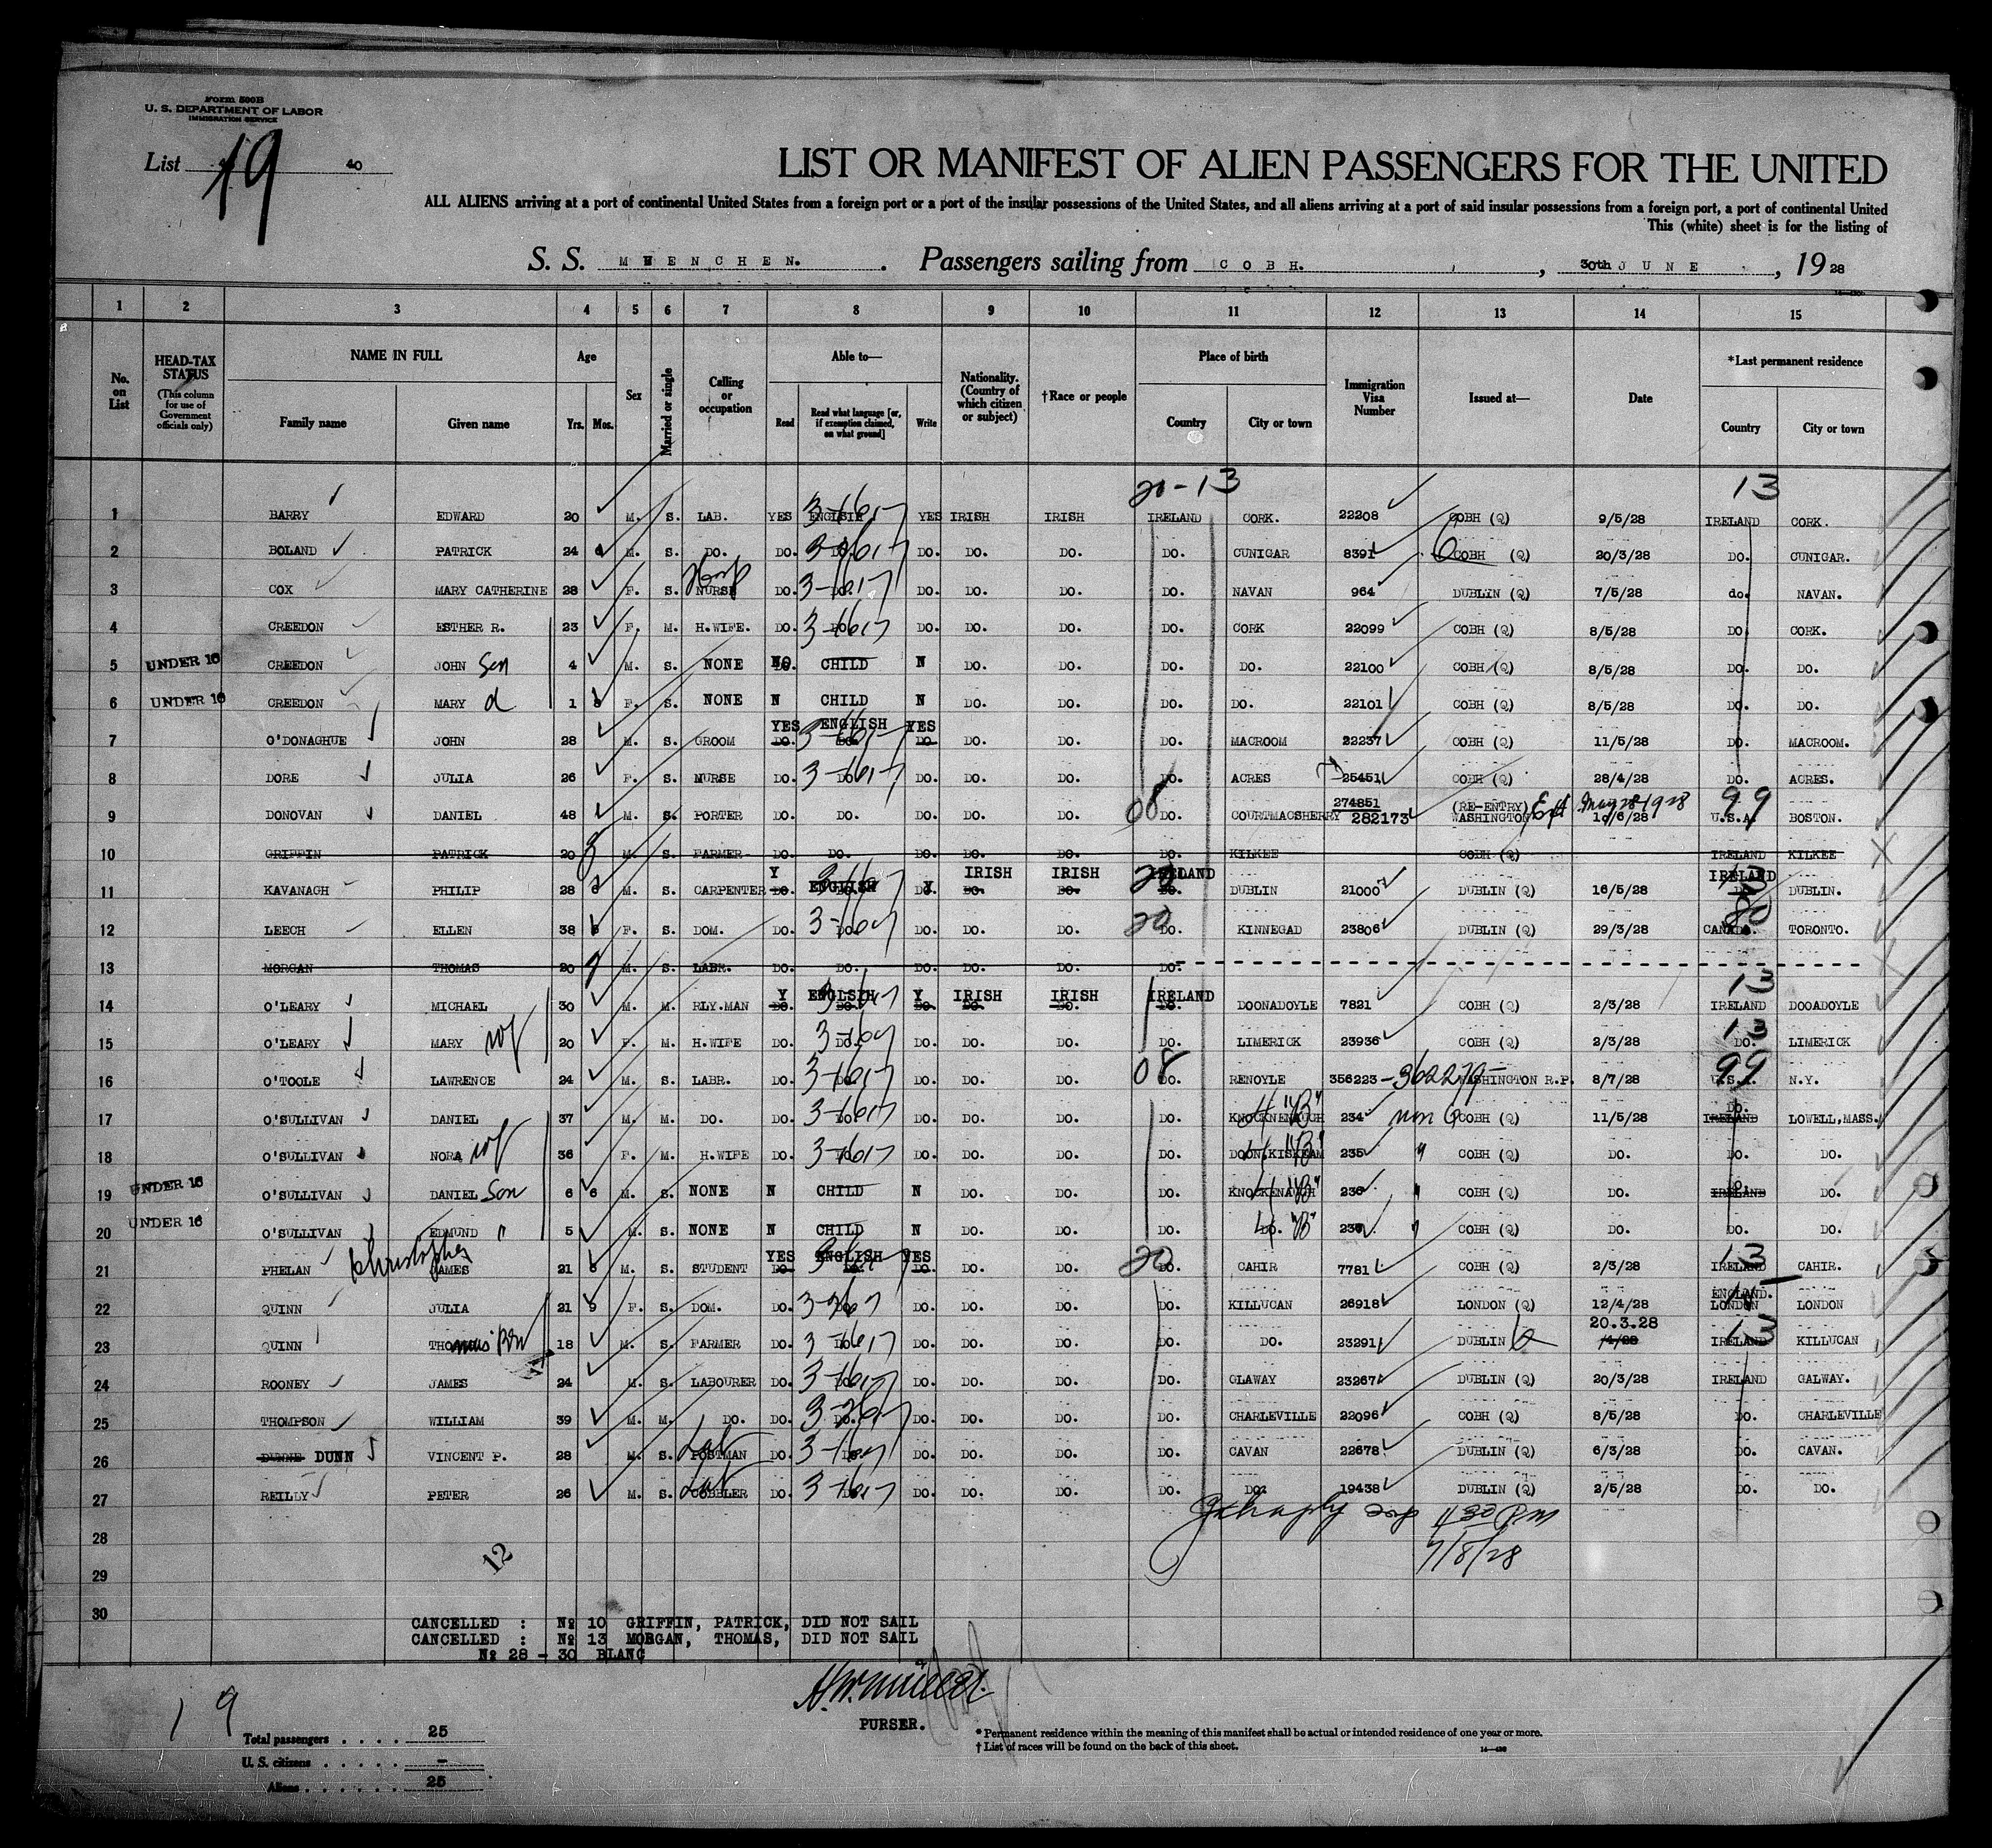 Form 500B
U. S. DEPARTMENT OF LABOR
IMMIGRATION SERVICE
List 19 40
LIST OR MANIFEST OF ALIEN PASSENGERS FOR THE UNITED
ALL ALIENS arriving at a port of continental United States from a foreign port or a port of the insular possessions of the United States, and all aliens arriving at a port of said insular possessions from a foreign port, a port of continental United
This (white) sheet is for the listing of
S. S. MUENCHEN. Passengers sailing from COBH. , 30th JUNE , 1928
1 2 3 4 5 6 7 8 9 10 11 12 13 14 15
No. on List HEAD-TAX STATUS (This column for use of Government officials only) NAME IN FULL Family name Given name Age Yrs. Mos. Sex Married or single Calling or occupation Able to— Read Read what language [or, if exemption claimed, on what ground] Write Nationality. (Country of which citizen or subject) †Race or people Place of birth Country City or town Immigration Visa Number Issued at— Date *Last permanent residence Country City or town
20-13 13
1 BARRY EDWARD 20 M. S. LAB. YES ENGLSIH YES IRISH IRISH IRELAND CORK. 22208 COBH (Q) 9/5/28 IRELAND CORK.
2 BOLAND PATRICK 24 M. S. DO. DO. DO. DO. DO. DO. DO. CUNIGAR 8391 COBH (Q) 20/3/28 DO. CUNIGAR.
3 COX MARY CATHERINE 28 F. S. NURSE DO. DO. DO. DO. DO. DO. NAVAN 964 DUBLIN (Q) 7/5/28 do. NAVAN.
4 CREEDON ESTHER R. 23 F. M. H.WIFE. DO. DO. DO. DO. DO. DO. CORK 22099 COBH (Q) 8/5/28 DO. CORK.
5 UNDER 16 CREEDON JOHN Son 4 M. S. NONE NO CHILD N DO. DO. DO. DO. 22100 COBH (Q) 8/5/28 DO. DO.
6 UNDER 16 CREEDON MARY d 1 F. S. NONE N CHILD N DO. DO. DO. DO. 22101 COBH (Q) 8/5/28 DO. DO.
YES ENGLISH YES
7 O'DONAGHUE JOHN 28 M. S. GROOM DO. DO. DO. DO. DO. DO. MACROOM 22237 COBH (Q) 11/5/28 DO. MACROOM.
8 DORE JULIA 26 F. S. NURSE DO. DO. DO. DO. DO. DO. ACRES 25451 COBH (Q) 28/4/28 DO. ACRES.
274851 (RE-ENTRY) May 28-1928 99
9 DONOVAN DANIEL 48 M. S. PORTER DO. DO. DO. DO. DO. 08 DO. COURTMACSHERRY 282173 WASHINGTON 1/6/28 U.S.A. BOSTON.
10 GRIFFIN PATRICK 20 M. S. FARMER DO. DO. DO. DO. DO. DO. KILKEE COBH (Q) IRELAND KILKEE
Y ENGLISH Y IRISH IRISH IRELAND IRELAND
11 KAVANAGH PHILIP 28 M. S. CARPENTER DO. DO. DO. DO. DO. DUBLIN 21000 DUBLIN (Q) 16/5/28 DUBLIN.
12 LEECH ELLEN 38 F. S. DOM. DO. DO. DO. DO. DO. 20 DO. KINNEGAD 23806 DUBLIN (Q) 29/3/28 CANADA. TORONTO.
13 MORGAN THOMAS 20 M. S. LABR. DO. DO. DO. DO. DO. DO.
Y ENGLSIH Y IRISH IRISH IRELAND 13
14 O'LEARY MICHAEL 30 M. M. RLY.MAN DO. DO. DO. DO. DO. DO. DOONADOYLE 7821 COBH (Q) 2/3/28 IRELAND DOOADOYLE
15 O'LEARY MARY wf 20 F. M. H.WIFE DO. DO. DO. DO. DO. DO. LIMERICK 23936 COBH (Q) 2/3/28 13 DO. LIMERICK
16 O'TOOLE LAWRENCE 24 M. S. LABR. DO. DO. DO. DO. DO. 08 DO. RENOYLE 356223 - 362279 WASHINGTON R.P. 8/7/28 99 U.S.A. N.Y.
17 O'SULLIVAN DANIEL 37 M. M. DO. DO. DO. DO. DO. DO. DO. KNOCKNENAUGH 4 "B" 234 non Q COBH (Q) 11/5/28 DO. IRELAND LOWELL,MASS.
18 O'SULLIVAN NORA wf 36 F. M. H.WIFE DO. DO. DO. DO. DO. DO. DOON,KISKEAM 4 "B" 235 " COBH (Q) DO. DO. DO.
19 UNDER 16 O'SULLIVAN DANIEL Son 6 6 M. S. NONE N CHILD N DO. DO. DO. KNOCKENAUGH 4 "B" 236 " COBH (Q) DO. DO. IRELAND DO.
20 UNDER 16 O'SULLIVAN EDMUND " 5 M. S. NONE N CHILD N DO. DO. DO. DO. 4 "B" " COBH (Q) DO. DO. DO.
Christopher YES ENGLISH YES
21 PHELAN JAMES 21 M. S. STUDENT DO. DO. DO. DO. DO. 20 DO. CAHIR 7781 COBH (Q) 2/3/28 13 IRELAND CAHIR.
ENGLAND.
22 QUINN JULIA 21 9 F. S. DOM. DO. DO. DO. DO. DO. DO. KILLUCAN 26918 LONDON (Q) 12/4/28 LONDON LONDON
20.3.28
23 QUINN THOmas Bro 18 M. S. FARMER DO. DO. DO. DO. DO. DO. DO. 23291 DUBLIN Q /4/28 13 IRELAND KILLUCAN
24 ROONEY JAMES 24 M. S. LABOURER DO. DO. DO. DO. DO. DO. GLAWAY 23267 DUBLIN (Q) 20/3/28 IRELAND GALWAY.
25 THOMPSON WILLIAM 39 M. M. DO. DO. DO. DO. DO. DO. DO. CHARLEVILLE 22096 COBH (Q) 8/5/28 DO. CHARLEVILLE
26 DUNNE DUNN VINCENT P. 28 M. S. Lab POSTMAN DO. DO. DO. DO. DO. DO. CAVAN 22678 DUBLIN (Q) 6/3/28 DO. CAVAN.
27 REILLY PETER 26 M. S. Lab COBBLER DO. DO. DO. DO. DO. DO. DO. 19438 DUBLIN (Q) 2/5/28 DO. DO.
4 30 PM
28
7/8/28
29 12
30
CANCELLED : № 10 GRIFFIN, PATRICK, DID NOT SAIL
CANCELLED : № 13 MORGAN, THOMAS, DID NOT SAIL
№ 28 - 30 BLANC
PURSER.
19
Total passengers . . . . 25
U. S. citizens . . . . . -
Aliens . . . . . . 25
* Permanent residence within the meaning of this manifest shall be actual or intended residence of one year or more.
† List of races will be found on the back of this sheet.